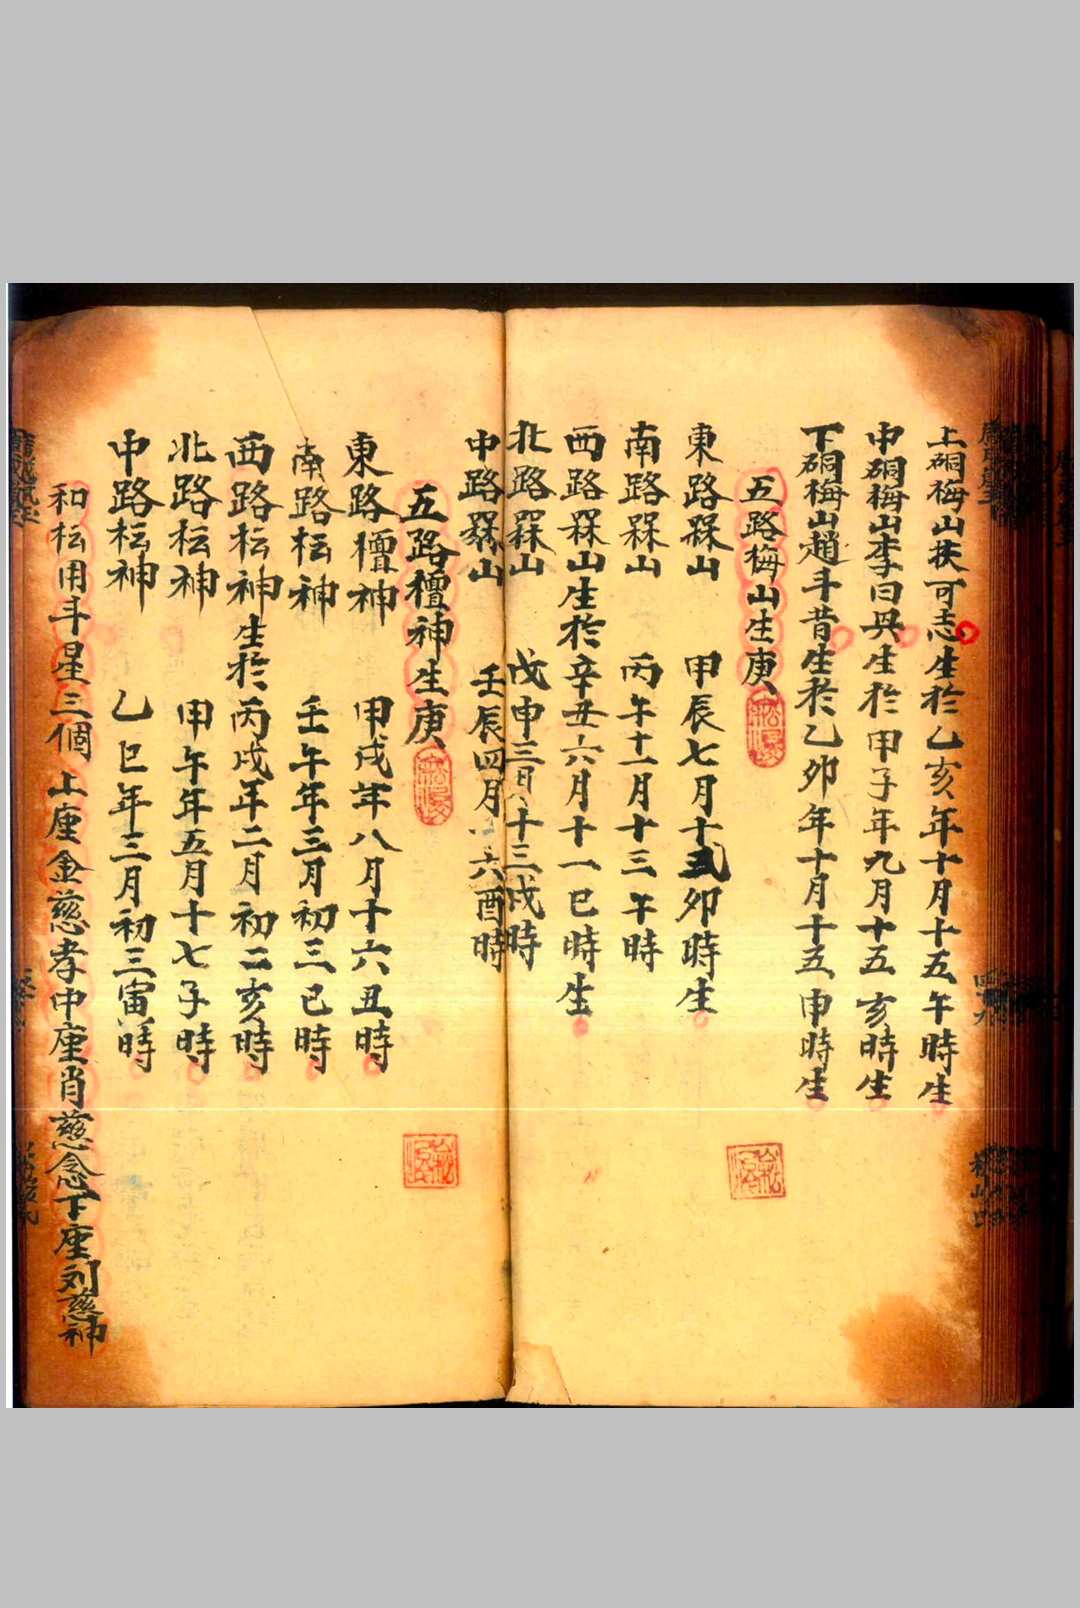 上硐梅山扶可志生於乙亥年十月十五午時生
中硐梅山李曰興生於甲子年九月十五亥時生
下硐梅山趙斗昔生於乙卯年十月十五申時生
五路梅山生庚
東路槑山 甲辰七月十五卯時生
南路槑山 丙午十一月十三午時
西路槑山生於辛丑六月十一巳時生
北路槑山 戊申三月十三戌時
中路槑山 壬辰四月六酉時
五路檀神生庚
東路檀神 甲戌年八月十六丑時
南路枟神 壬午年三月初三巳時
西路枟神生於丙戌年二月初二亥時
北路枟神 甲午年五月十七子時
中路枟神 乙巳年三月初三寅時
和枟用斗星三個 上座金慈孝中座肖慈念下座刘慈神